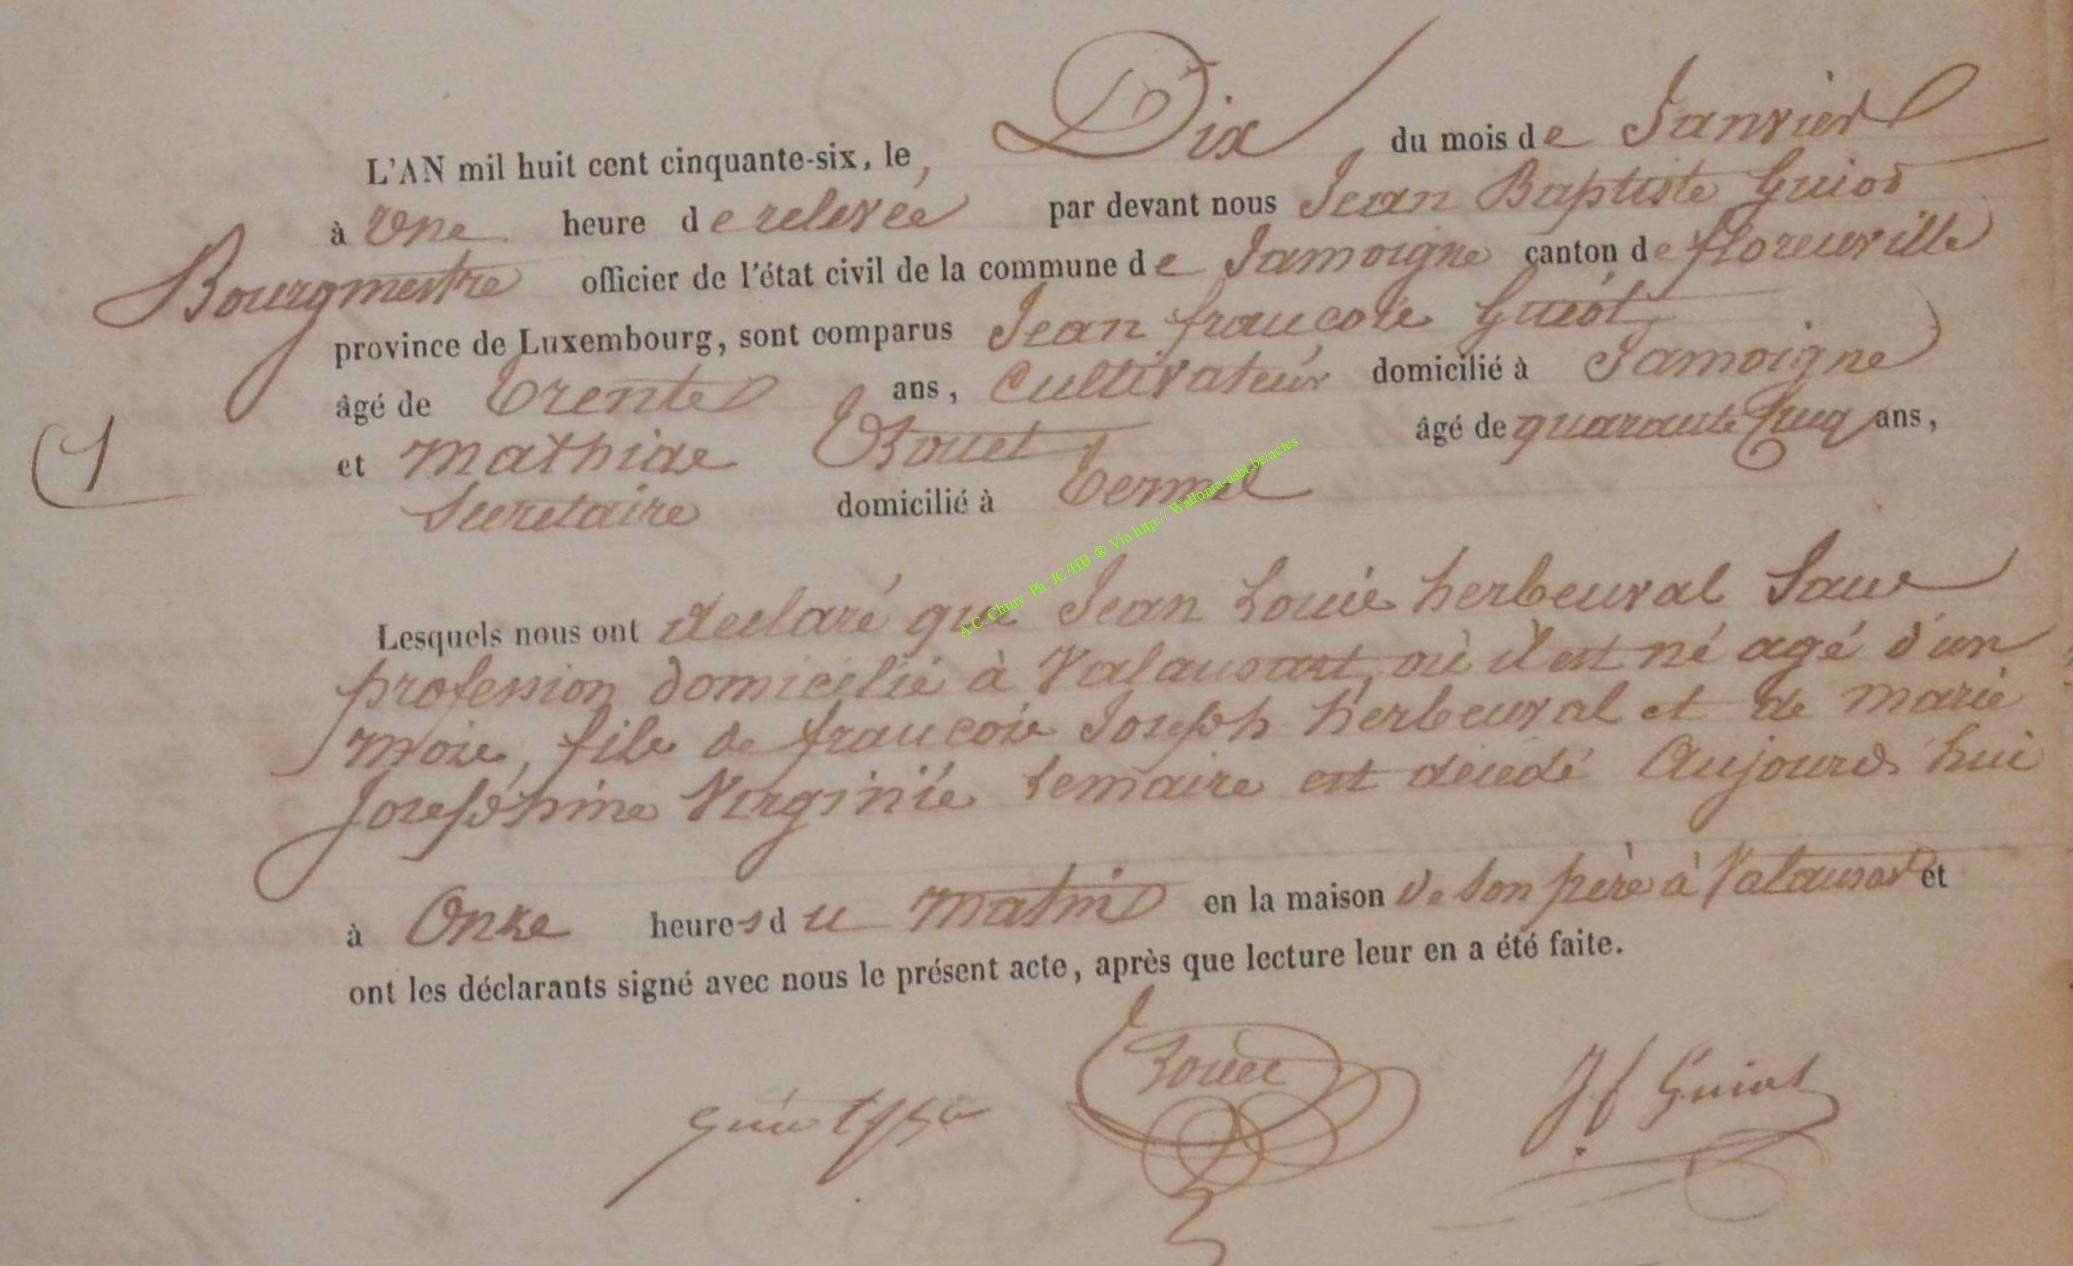 L'AN mil huit cent cinquante-six, le Dix du mois de Janvier
à Une heure de relevée par devant nous Jean Baptiste Guiot
Bourgmestre officier de l'état civil de la commune de Jamoigne canton de florenville
province de Luxembourg, sont comparus Jean françois Guiot
âgé de trente ans, Cultivateur domicilié à Jamoigne
1 et mathias Bouet âgé de quarante Cinq ans,
Secretaire domicilié à termes
Lesquels nous ont declaré que Jean Louis herbeuval Sans
profession domicilié à Valansart, où il est né agé d'un
mois, fils de françois Joseph herbeuval et de marie
Joséphine Virginie Lemaire est décédé Aujourd'hui
à Onze heures du matin en la maison de son père à Valansart et
ont les déclarants signé avec nous le présent acte, après que lecture leur en a été faite.
Guiot Bouet J f Guiot
A.C. Chiny Ph. JC/HB ® Via http:// Wallonia-asbl.be/actes